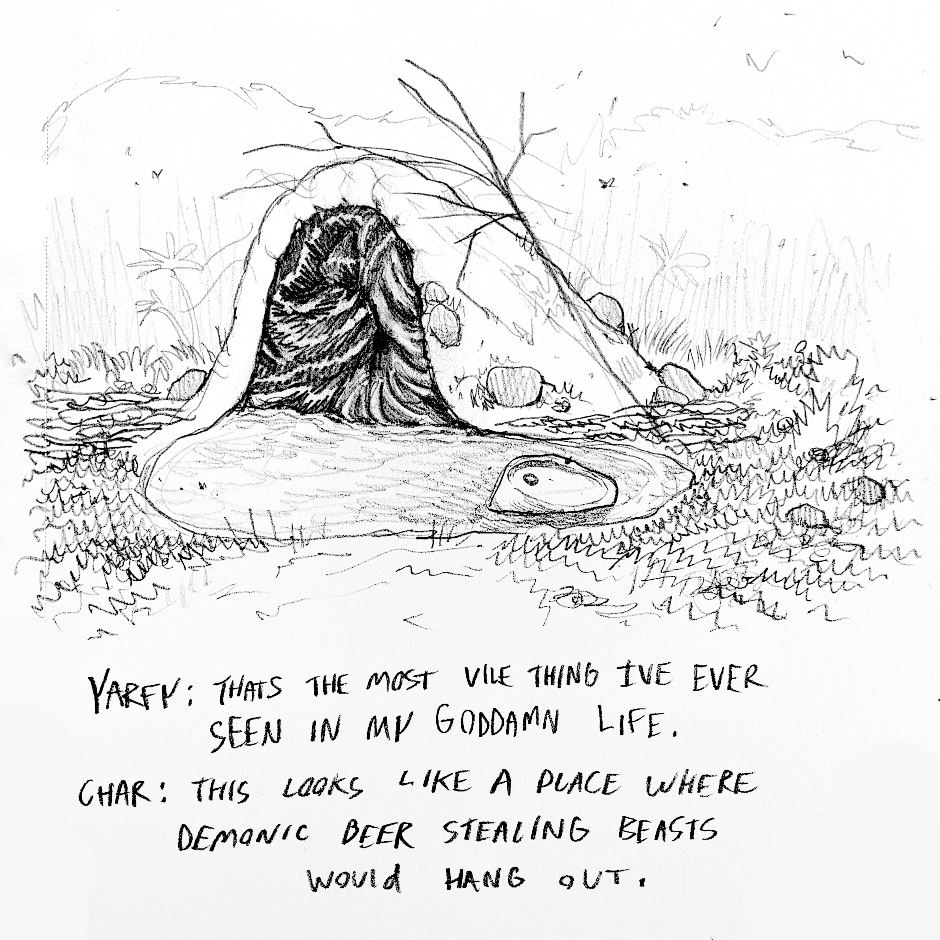 YARFY: THATS THE MOST VILE THING IVE EVER
SEEN IN MY GODDAMN LIFE.
CHAR: THIS LOOKS LIKE A PLACE WHERE
DEMONIC BEER STEALING BEASTS
WOULd HANG OUT.